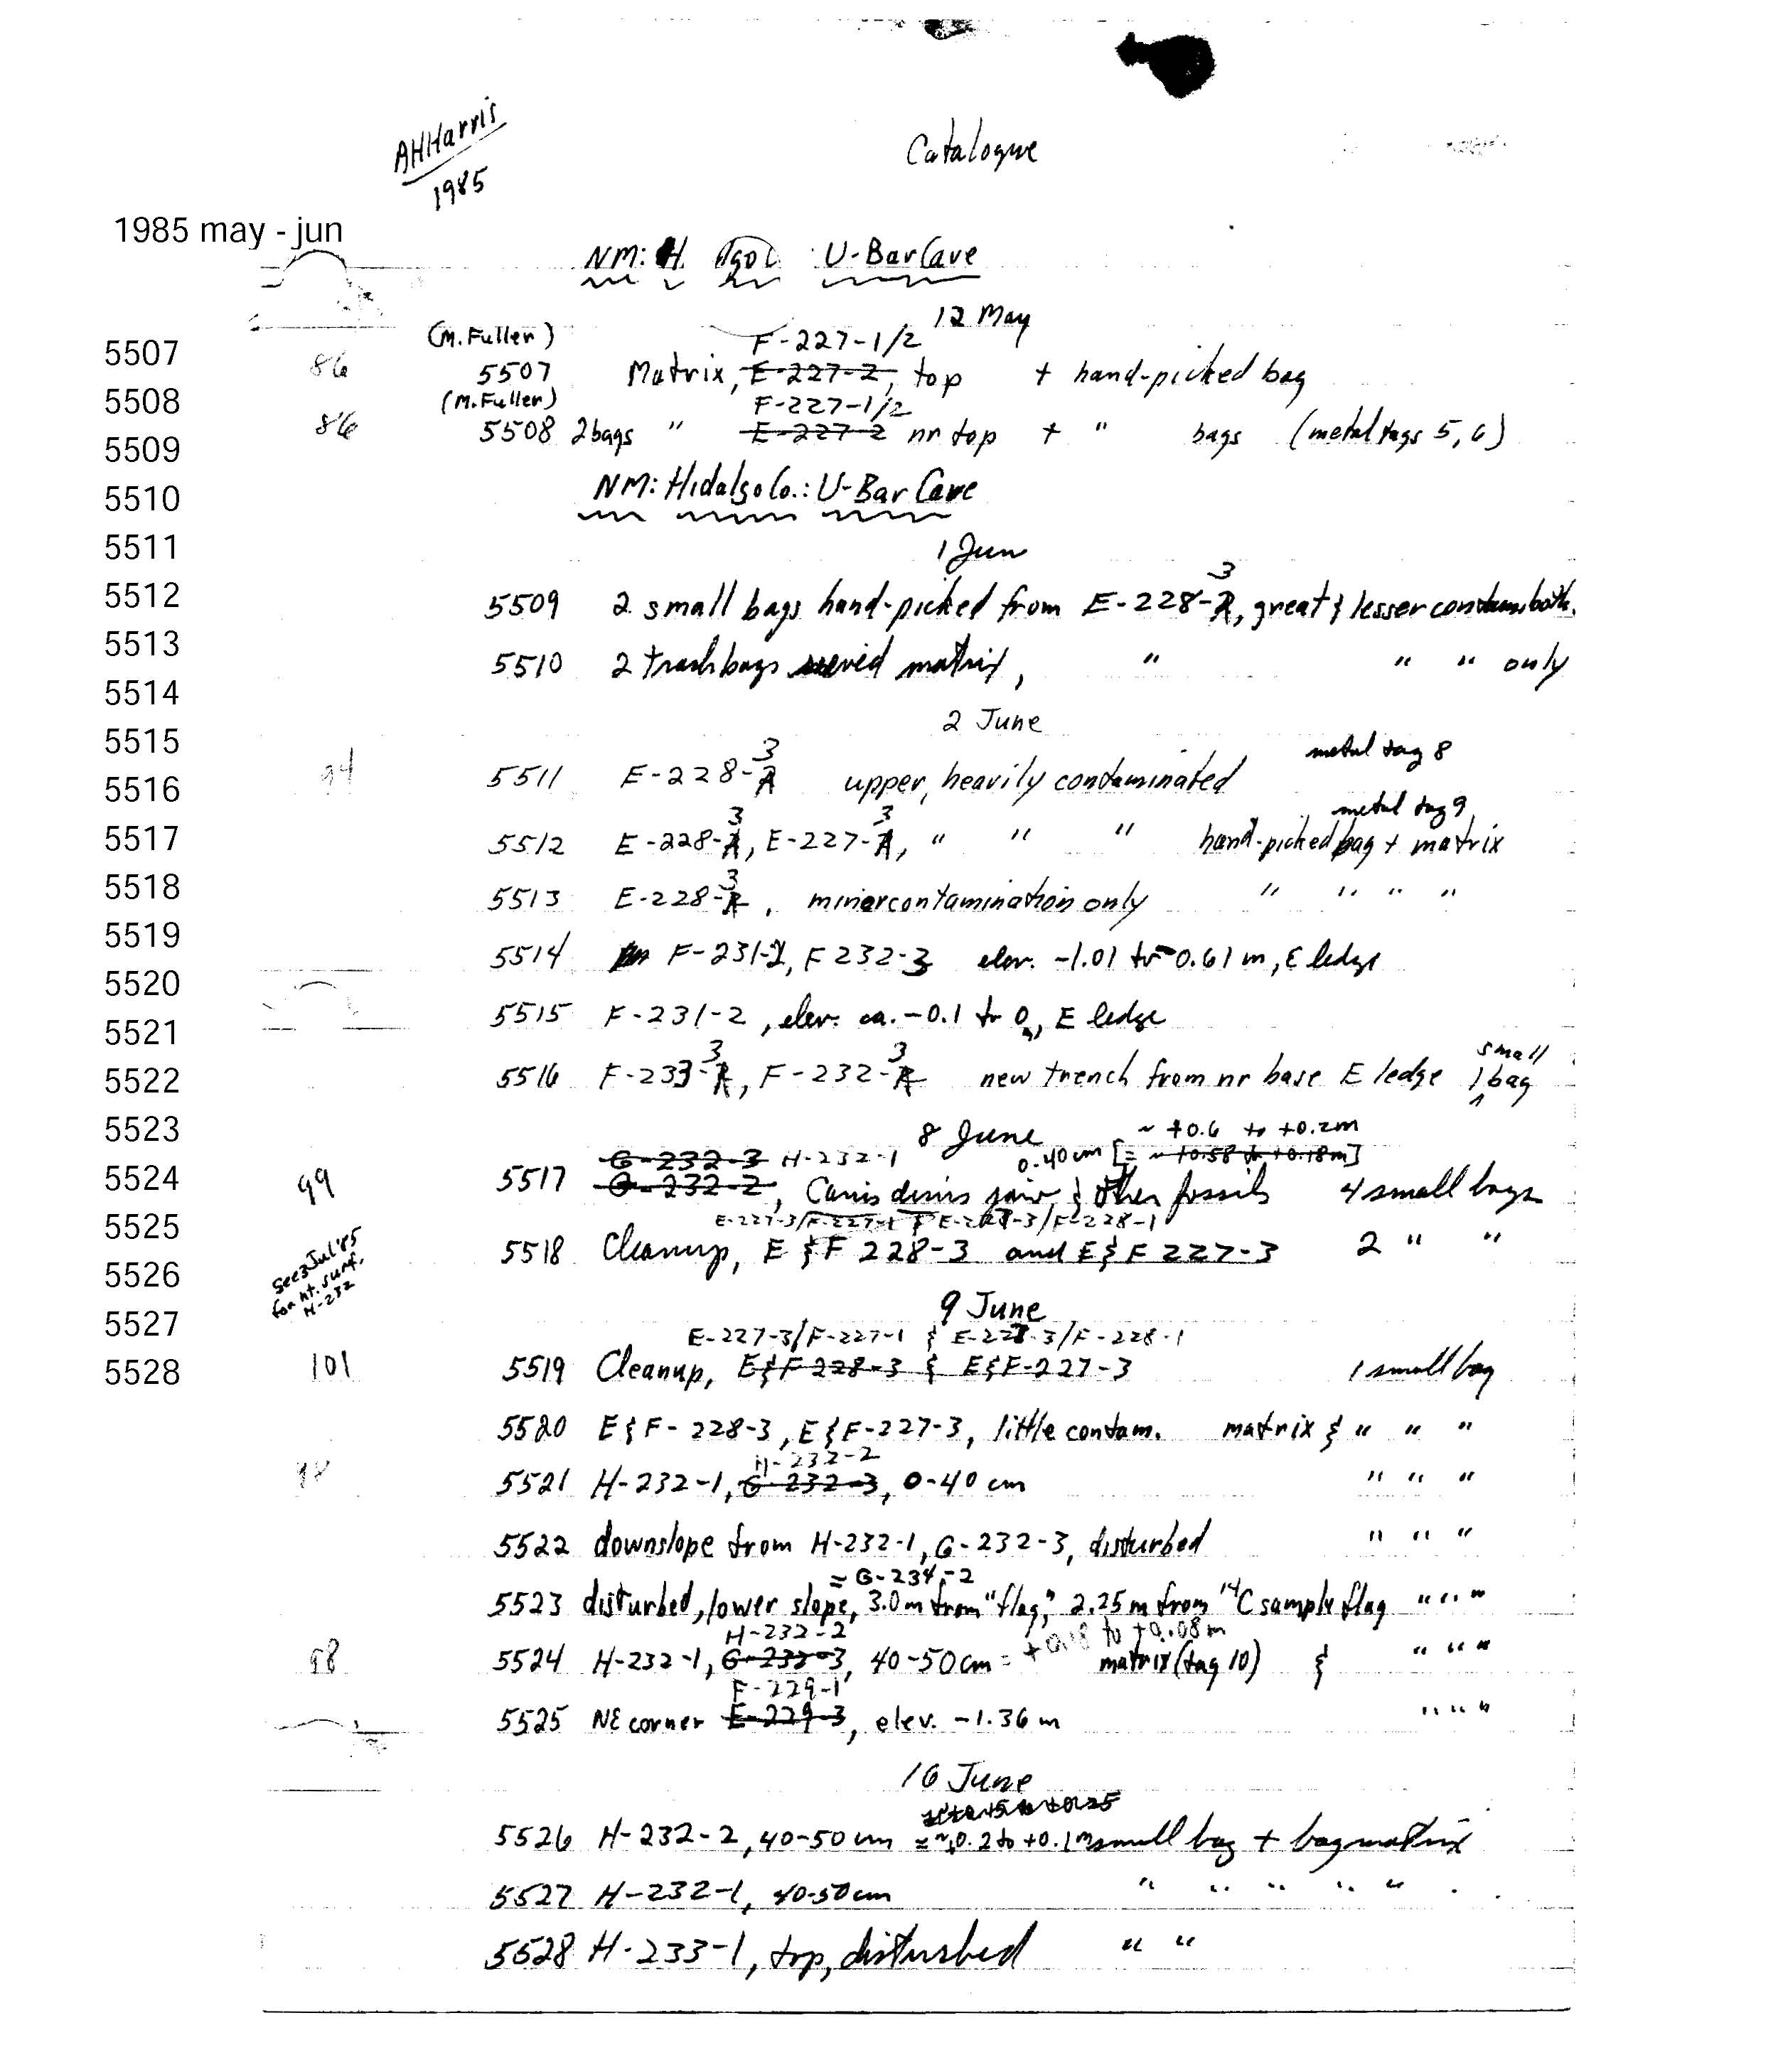 AHHarris
1985
Catalogue
1985 may - jun
NM: H U-Bar Cave
12 May
(M. Fuller) F-227-1/2
5507 86 5507 Matrix, E-227-2, top + hand-picked bag
5508 (M. Fuller) F-227-1/2
86 5508 2 bags " E-227-2 nr top + " bags (metal tags 5, 6)
5509
5510 NM: Hidalgo Co.: U-Bar Cave
5511 1 Jun
3
5512 5509 2 small bags hand-picked from E-228-R, great & lesser contam. both.
5513 5510 2 trash bags matrix, " " " only
5514
2 June
5515 3 metal tag 8
5516 94 5511 E-228-R upper, heavily contaminated
3 3 metal tag 9
5517 5512 E-228-R, E-227-R, " " " hand-picked bag + matrix
3
5518 5513 E-228-R, minor contamination only " " " "
5519 5514 F-231-2, F 232-3 elev. -1.01 to -0.61 m, E ledge
5520
5521 5515 F-231-2, elev. ca. -0.1 to 0, E ledge
3 3 small
5522 5516 F-233-R, F-232-R new trench from nr base E ledge 1 bag
5523 8 June ~ +0.6 to +0.2m
G-232-3 H-232-1 0-40 cm [= ~ +0.58 to +0.18m]
5524 99 5517 G-232-2, Canis dirus jaw & other fossils 4 small bags
5525 E-227-3/F-227-1 & E-228-3/F-228-1
5518 Cleanup, E & F 228-3 and E & F 227-3 2 " "
5526 See 3 Jul '85
for ht. surf.
H-232
5527 9 June
E-227-3/F-227-1 & E-228-3/F-228-1
5528 101 5519 Cleanup, E&F 228-3 & E&F-227-3 1 small bag
5520 E&F-228-3, E&F-227-3, little contam. matrix & " " "
H-232-2
98 5521 H-232-1, G-232-3, 0-40 cm " " "
5522 downslope from H-232-1, G-232-3, disturbed " " "
= G-234-2
5523 disturbed, lower slope, 3.0m from "flag," 2.25m from 14C sample flag " " "
H-232-2 +0.18 to +0.08m
98 5524 H-232-1, G-232-3, 40-50cm = matrix (tag 10) & " " "
F-229-1
5525 NE corner E-229-3, elev. -1.36 m " " "
16 June
5526 H-232-2, 40-50 cm = ~+0.2 to +0.1m small bag + bag matrix
5527 H-232-1, 40-50cm " " " " "
5528 H-233-1, top, disturbed " "